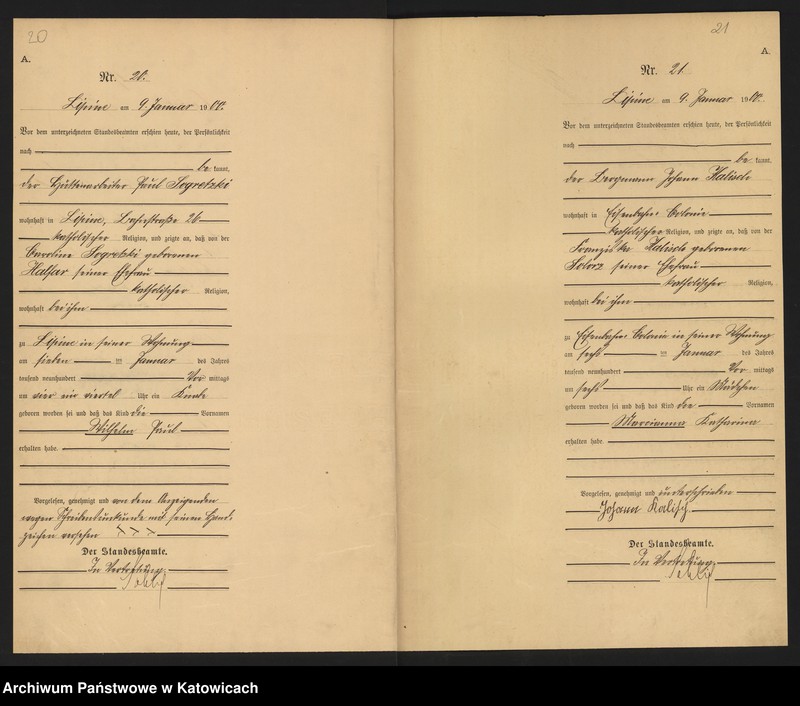 20
A.
Nr. 20.
Lipine am 9. Januar 1900.
Vor dem unterzeichneten Standesbeamten erschien heute, der Persönlichkeit
nach
be kannt,
der Hüttenarbeiter Paul Sogretzki
wohnhaft in Lipine, 26
katholischer Religion, und zeigte an, daß von der
Caroline Sogretzki geborenen
seiner Ehefrau
katholischer Religion,
wohnhaft bei ihm
zu Lipine in seiner Wohnung
am sieben ten Januar des Jahres
tausend neunhundert Vor mittags
um vier ein viertel Uhr ein Knabe
geboren worden sei und daß das Kind die Vornamen
Wilhelm Paul
erhalten habe.
Vorgelesen, genehmigt und von dem Anzeigenden
wegen Schreibensunkunde mit seinem Hand-
zeichen versehen XXX
Der Standesbeamte.
In Vertretung.
21
A.
Nr. 21
Lipine am 9. Januar 1900.
Vor dem unterzeichneten Standesbeamten erschien heute, der Persönlichkeit
nach
be kannt,
der Bergmann Johann Kalisch
wohnhaft in Eisenbahn Colonie
katholischer Religion, und zeigte an, daß von der
Franziska Kalisch geborenen
seiner Ehefrau
katholischer Religion,
wohnhaft bei ihm
zu Eisenbahn Colonie in seiner Wohnung
am sechs ten Januar des Jahres
tausend neunhundert Vor mittags
um sechs Uhr ein Mädchen
geboren worden sei und daß das Kind die Vornamen
Marcianna Katharina
erhalten habe.
Vorgelesen, genehmigt und unterschrieben
Johann Kalisch
Der Standesbeamte.
In Vertretung.
Archiwum Państwowe w Katowicach